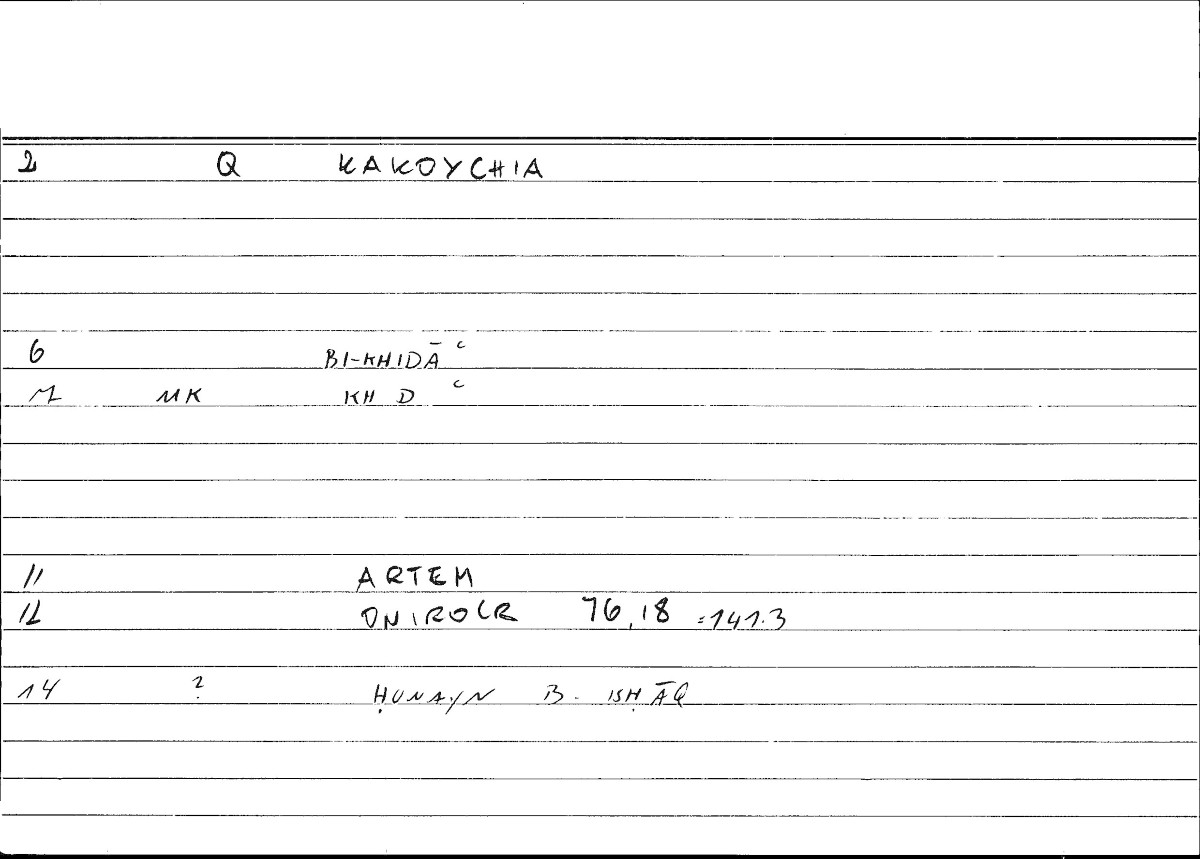 2 Q KAKOYCHIA
6 BI-KHIDĀʿ
7 MK KH D ʿ
11 ARTEM
12 ONIROCR 76,18 =141.3
14 ? ḤUNAYN B. ISḤĀQ